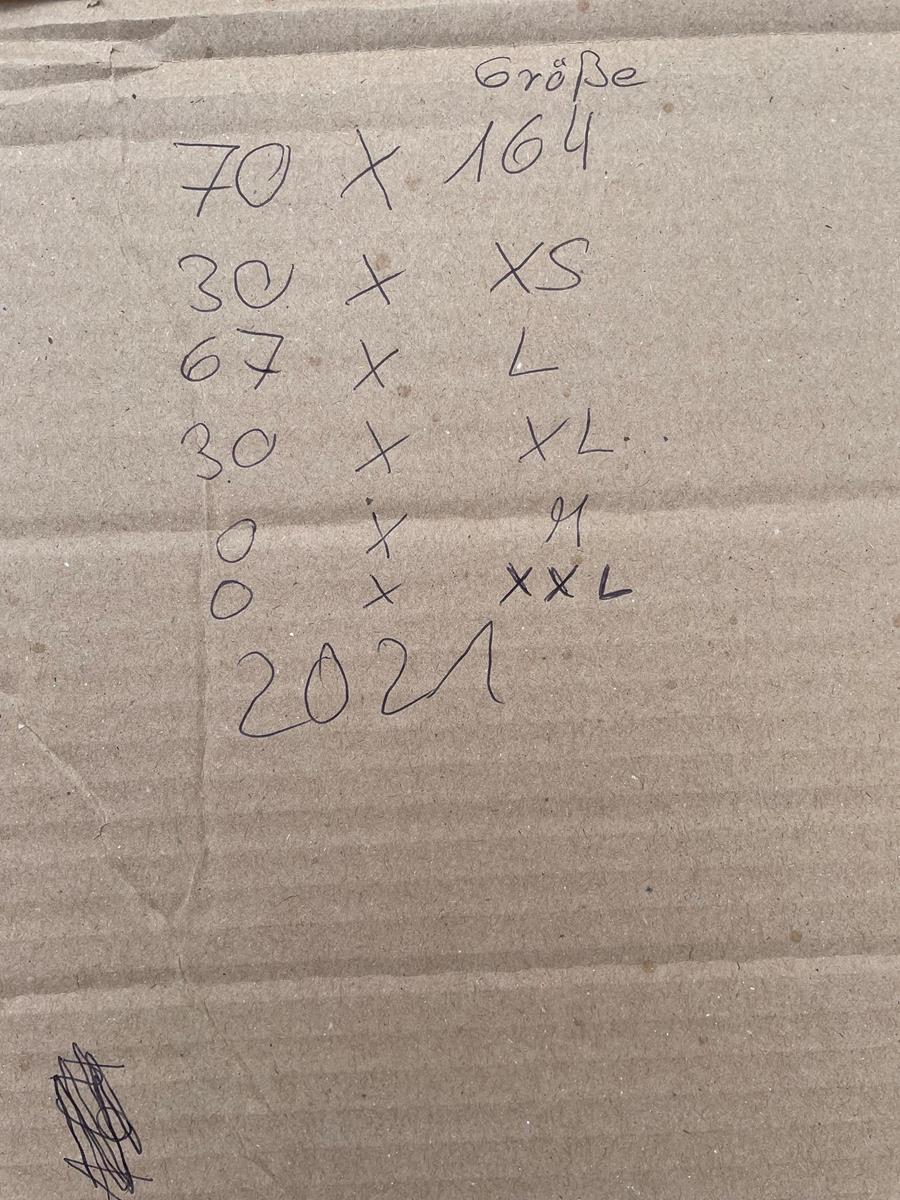 Größe
70 X 164
30 X XS
67 X L
30 X XL.
0 X M
0 X XXL
2021